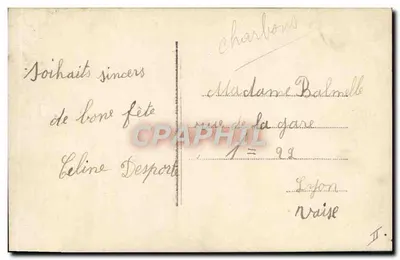 charbons
Souhaits sincers
de bone fête
Celine Desporte
Madame Balmelle
rue de la gare
1 = 22
Lyon
Vaise
II.
CPARAMA.COM